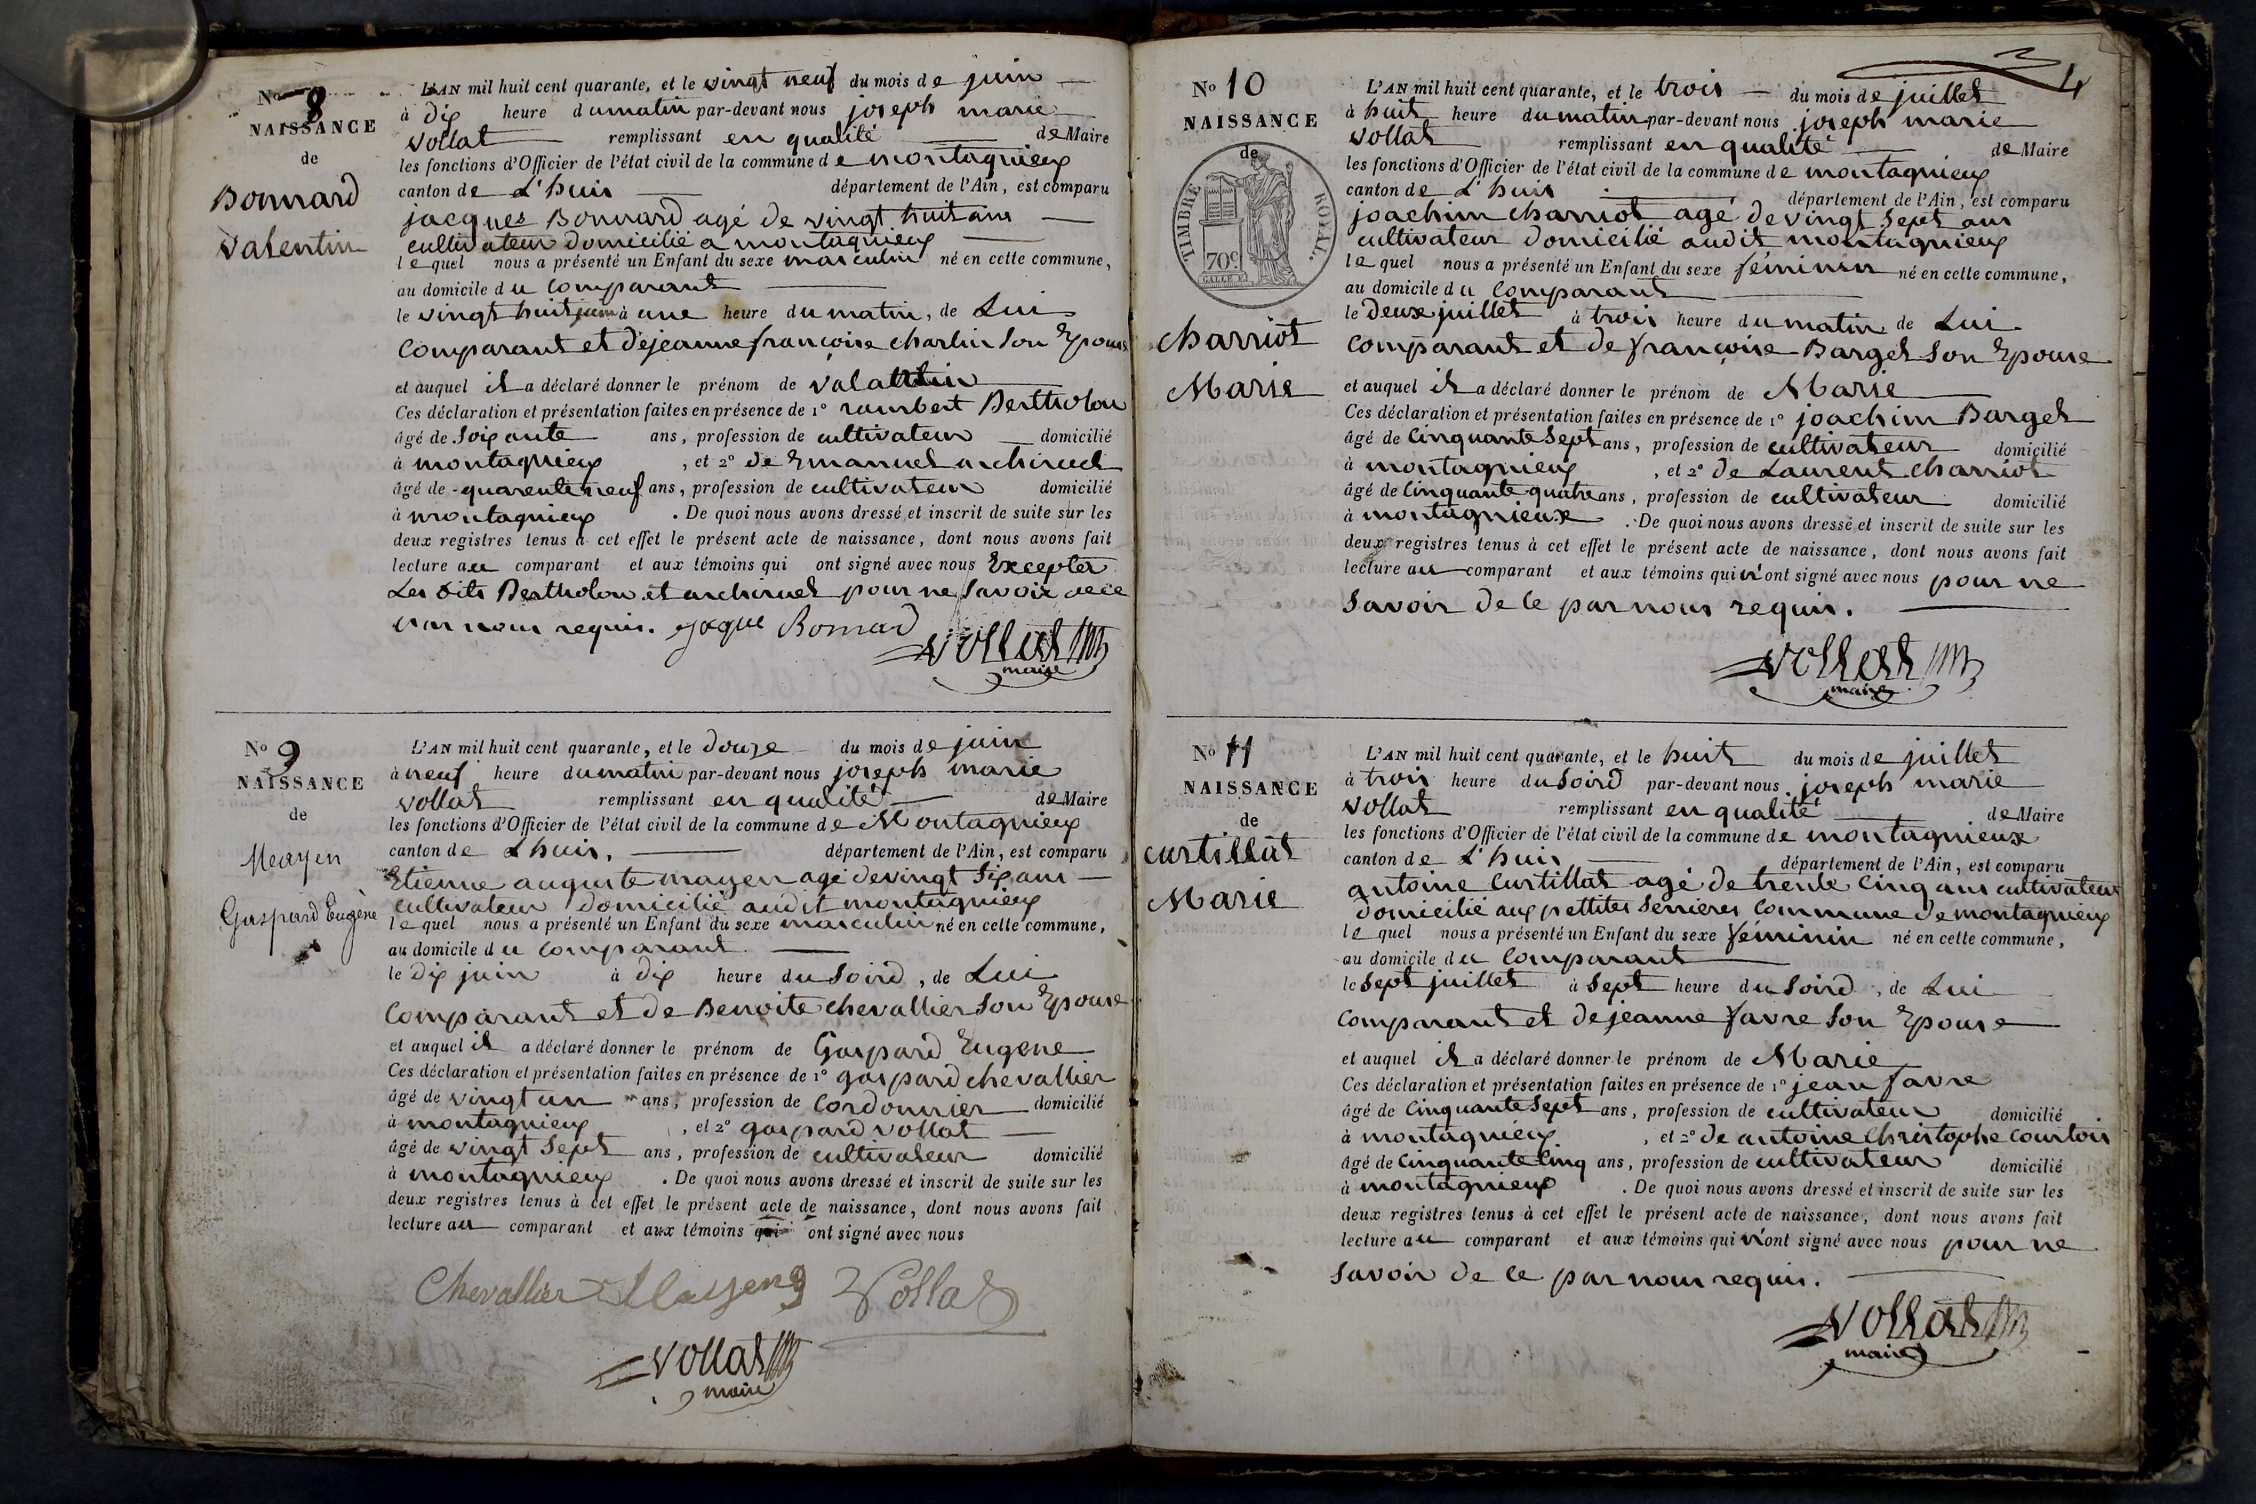 No 8
NAISSANCE
de
Bonnard
Valentin
L'AN mil huit cent quarante, et le vingt neuf du mois de juin
à dix heure du matin par-devant nous joseph marie
vollat remplissant en qualité de Maire
les fonctions d'Officier de l'état civil de la commune de montagnieux
canton de L'huis département de l'Ain, est comparu
jacques Bonnard agé de vingt huit ans
cultivateur domicilié a montagnieux
lequel nous a présenté un Enfant du sexe masculin né en cette commune,
au domicile du comparant
le vingt huit juin à une heure du matin, de Lui
comparant et de jeanne françoise charlin son Epouse
et auquel il a déclaré donner le prénom de
Ces déclaration et présentation faites en présence de 1° rambert Bertholon
âgé de soixante ans, profession de cultivateur domicilié
à montagnieux, et 2° de Emanuel
âgé de quarente neuf ans, profession de cultivateur domicilié
à montagnieux. De quoi nous avons dressé et inscrit de suite sur les
deux registres tenus à cet effet le présent acte de naissance, dont nous avons fait
lecture au comparant et aux témoins qui ont signé avec nous Excepter
Les dits Bertholon et pour ne savoir de ce
par nous requis. jaque Bonnard
vollat
maire
No 9
NAISSANCE
de
Mayen
Gaspard Eugène
L'AN mil huit cent quarante, et le douze du mois de juin
à neuf heure du matin par-devant nous joseph marie
vollat remplissant en qualité de Maire
les fonctions d'Officier de l'état civil de la commune de Montagnieux
canton de Lhuis, département de l'Ain, est comparu
Etienne auguste mayen agé de vingt six ans
cultivateur domicilié audit montagnieux
lequel nous a présenté un Enfant du sexe masculin né en cette commune,
au domicile du comparant.
le dix juin à dix heure du soird, de Lui
comparant et de Benoite chevallier son Epouse
et auquel il a déclaré donner le prénom de Gaspard Eugene
Ces déclaration et présentation faites en présence de 1° gaspard chevallier
âgé de vingt un ans, profession de cordonnier domicilié
à montagnieux, et 2° gaspard vollat
âgé de vingt sept ans, profession de cultivateur domicilié
à montagnieux. De quoi nous avons dressé et inscrit de suite sur les
deux registres tenus à cet effet le présent acte de naissance, dont nous avons fait
lecture au comparant et aux témoins qui ont signé avec nous
Chevallier Vollat
vollat
maire
4
No 10
NAISSANCE
de
TIMBRE ROYAL.
70c
charriot
Marie
L'AN mil huit cent quarante, et le trois du mois de juillet
à huit heure du matin par-devant nous joseph marie
vollat remplissant en qualité de Maire
les fonctions d'Officier de l'état civil de la commune de montagnieux
canton de L'huis département de l'Ain, est comparu
joachim charriot agé de vingt sept ans
cultivateur domicilié audit montagnieux
lequel nous a présenté un Enfant du sexe féminin né en cette commune,
au domicile du comparant
le deux juillet à trois heure du matin de Lui
comparant et de françoise Barget son Epouse
et auquel il a déclaré donner le prénom de Marie
Ces déclaration et présentation faites en présence de 1° joachim Barget
âgé de cinquante sept ans, profession de cultivateur domicilié
à montagnieux, et 2° de Laurent charriot
âgé de cinquante quatre ans, profession de cultivateur domicilié
à montagnieux. De quoi nous avons dressé et inscrit de suite sur les
deux registres tenus à cet effet le présent acte de naissance, dont nous avons fait
lecture au comparant et aux témoins qui n'ont signé avec nous pour ne
savoir de ce par nous requis.
vollat
maire
No 11
NAISSANCE
de
curtillat
Marie
L'AN mil huit cent quarante, et le huit du mois de juillet
à trois heure du soird par-devant nous joseph marie
vollat remplissant en qualité de Maire
les fonctions d'Officier de l'état civil de la commune de montagnieux
canton de L'huis département de l'Ain, est comparu
antoine curtillat agé de trente cinq ans cultivateur
domicilié aux pettites serrieres commune de montagnieux
lequel nous a présenté un Enfant du sexe féminin né en cette commune,
au domicile du comparant
le sept juillet à sept heure du soird, de Lui
comparant et de jeanne favre son Epouse
et auquel il a déclaré donner le prénom de Marie
Ces déclaration et présentation faites en présence de 1° jean favre
âgé de cinquante sept ans, profession de cultivateur domicilié
à montagnieux, et 2° de antoine christophe courtois
âgé de cinquante cinq ans, profession de cultivateur domicilié
à montagnieux. De quoi nous avons dressé et inscrit de suite sur les
deux registres tenus à cet effet le présent acte de naissance, dont nous avons fait
lecture au comparant et aux témoins qui n'ont signé avec nous pour ne
savoir de ce par nous requis.
vollat
maire